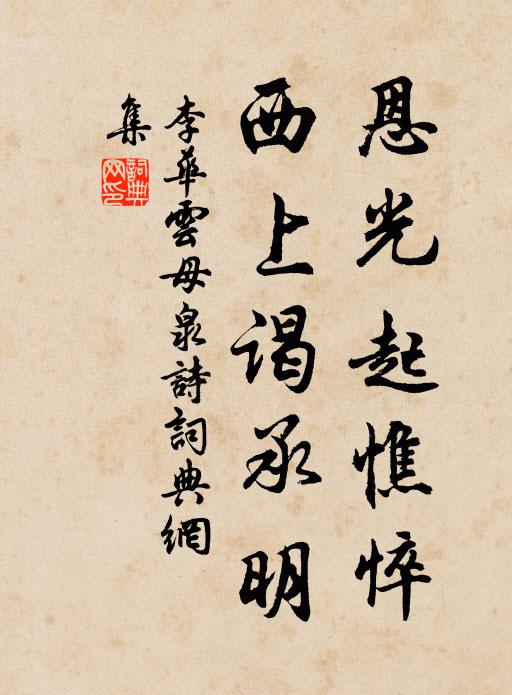 恩光起憔悴
西上谒承明
李華雲母泉詩詞典網
集
詞典
网印